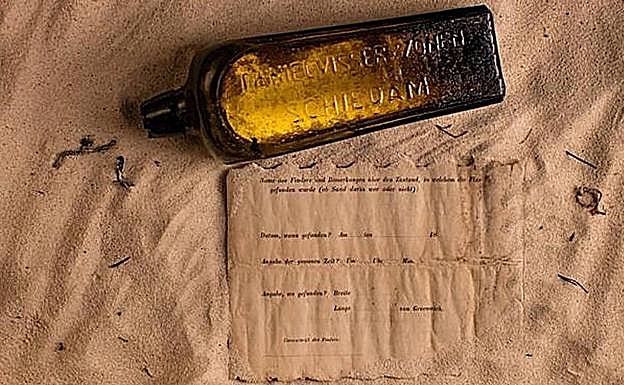 DANIEL VISSER & ZONEN
SCHIEDAM
Name des Finders und Bemerkungen über den Zustand, in welchem die
gefunden wurde (ob Sand darin war oder nicht)
Datum, wann gefunden? Am ... ten ... 18
Angabe der genauen Zeit? Um ... Uhr ... Min.
Angabe, wo gefunden? Breite
Länge ... von Greenwich.
Unterschrift des Finders: